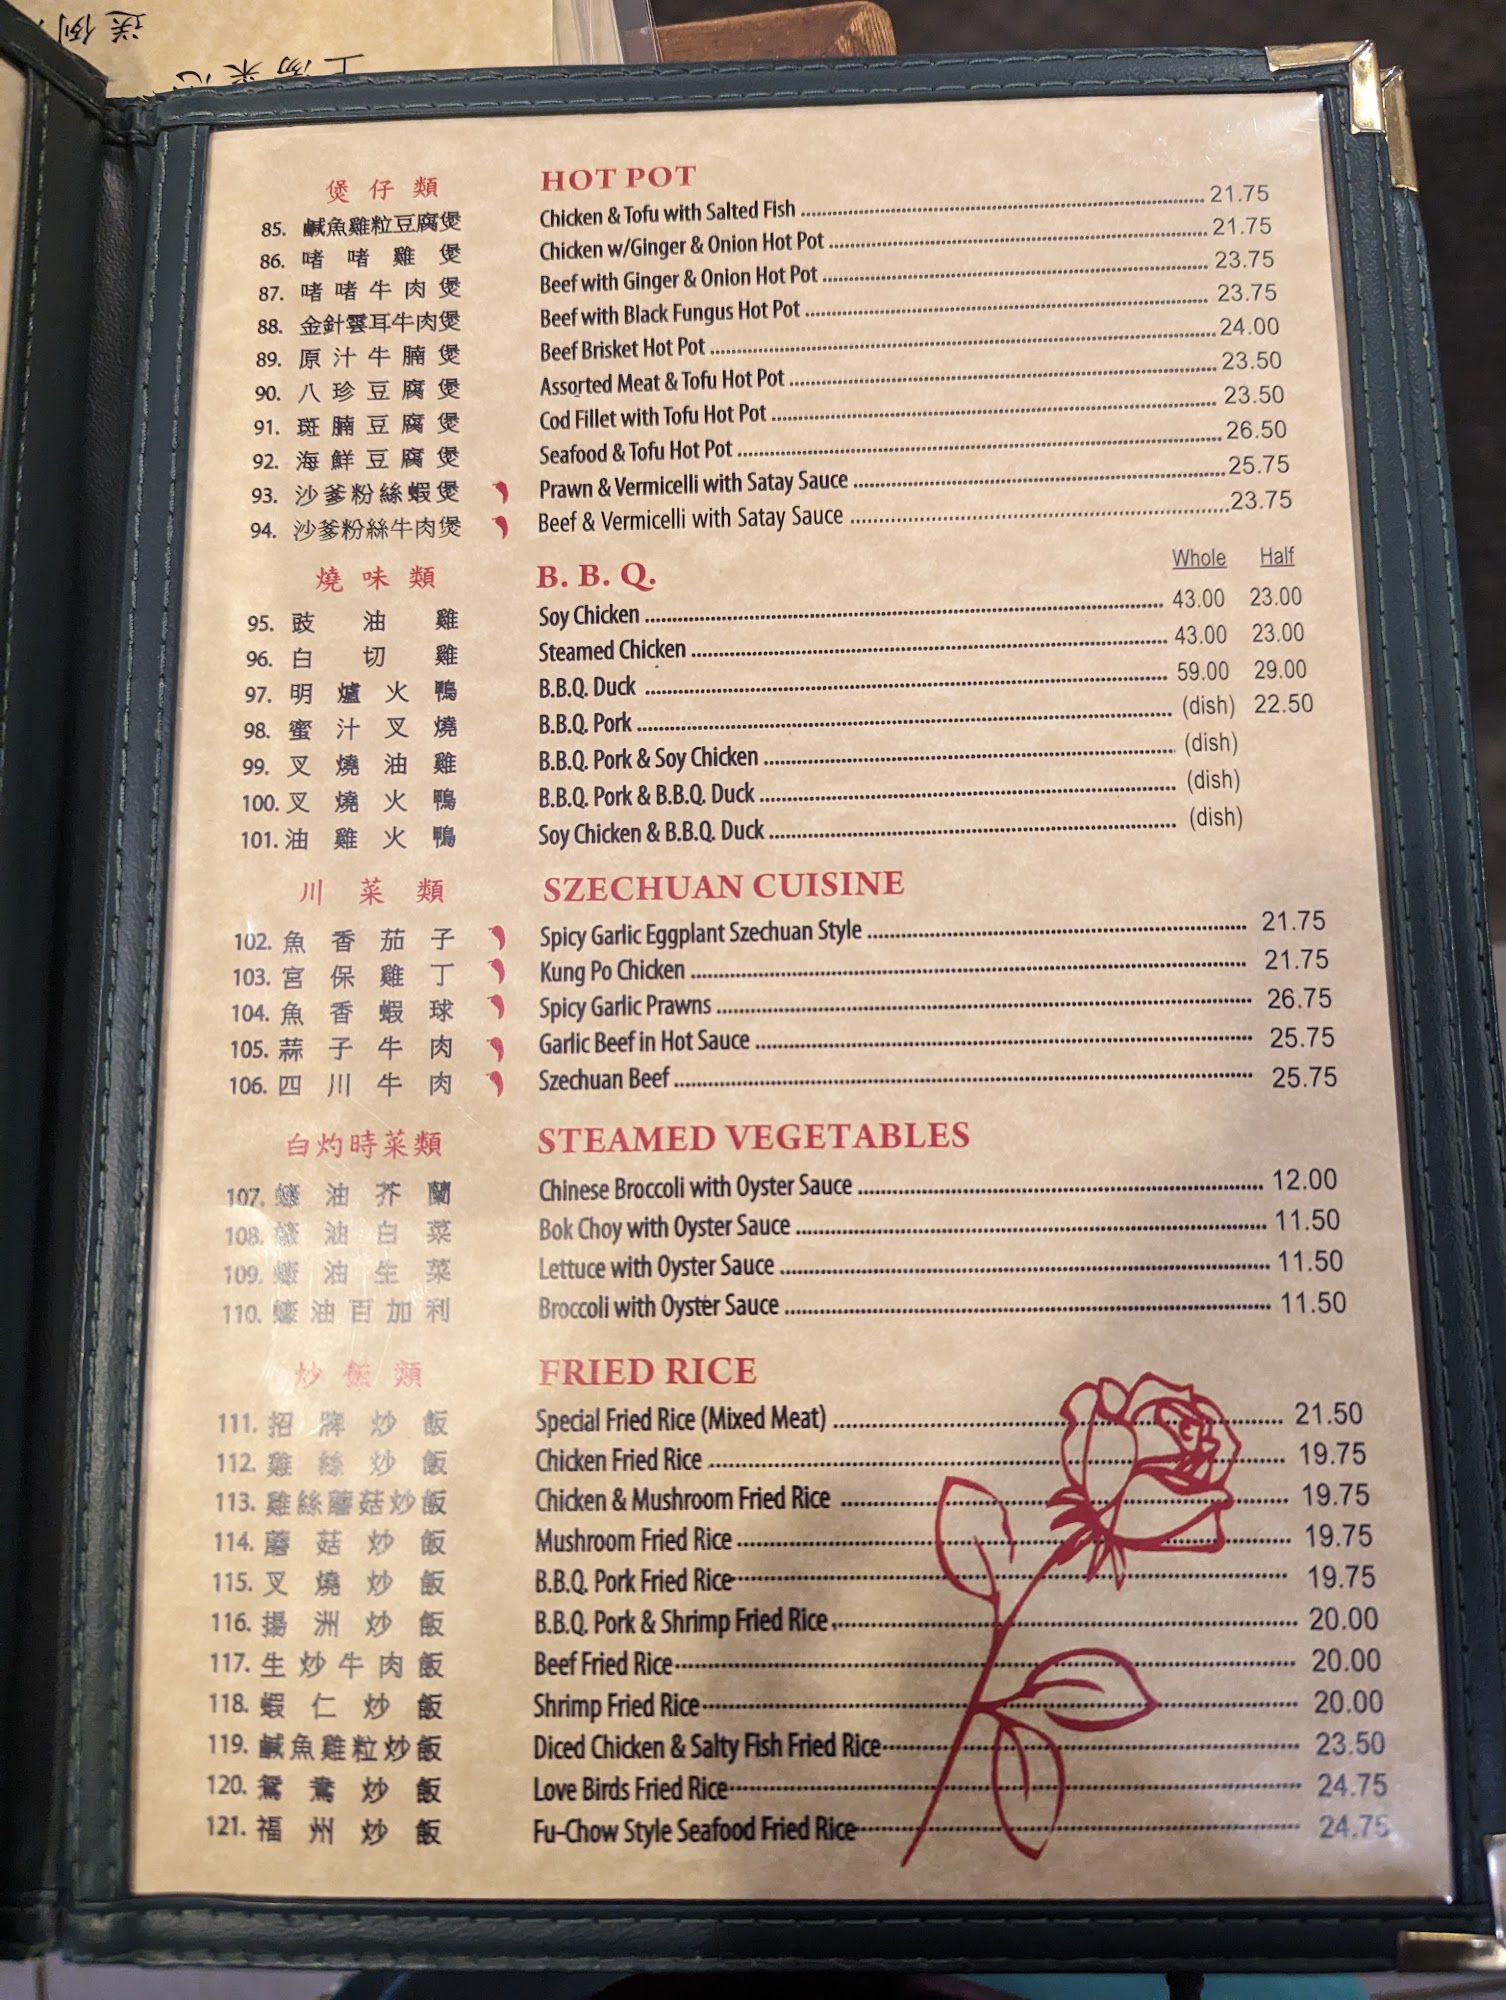 送例
上湯菜心
煲仔類 HOT POT
85. 鹹魚雞粒豆腐煲 Chicken & Tofu with Salted Fish 21.75
86. 啫啫雞煲 Chicken w/Ginger & Onion Hot Pot 21.75
87. 啫啫牛肉煲 Beef with Ginger & Onion Hot Pot 23.75
88. 金針雲耳牛肉煲 Beef with Black Fungus Hot Pot 23.75
89. 原汁牛腩煲 Beef Brisket Hot Pot 24.00
90. 八珍豆腐煲 Assorted Meat & Tofu Hot Pot 23.50
91. 斑腩豆腐煲 Cod Fillet with Tofu Hot Pot 23.50
92. 海鮮豆腐煲 Seafood & Tofu Hot Pot 26.50
93. 沙爹粉絲蝦煲 Prawn & Vermicelli with Satay Sauce 25.75
94. 沙爹粉絲牛肉煲 Beef & Vermicelli with Satay Sauce 23.75
燒味類 B. B. Q. Whole Half
95. 豉油雞 Soy Chicken 43.00 23.00
96. 白切雞 Steamed Chicken 43.00 23.00
97. 明爐火鴨 B.B.Q. Duck 59.00 29.00
98. 蜜汁叉燒 B.B.Q. Pork (dish) 22.50
99. 叉燒油雞 B.B.Q. Pork & Soy Chicken (dish)
100. 叉燒火鴨 B.B.Q. Pork & B.B.Q. Duck (dish)
101. 油雞火鴨 Soy Chicken & B.B.Q. Duck (dish)
川菜類 SZECHUAN CUISINE
102. 魚香茄子 Spicy Garlic Eggplant Szechuan Style 21.75
103. 宮保雞丁 Kung Po Chicken 21.75
104. 魚香蝦球 Spicy Garlic Prawns 26.75
105. 蒜子牛肉 Garlic Beef in Hot Sauce 25.75
106. 四川牛肉 Szechuan Beef 25.75
白灼時菜類 STEAMED VEGETABLES
107. 蠔油芥蘭 Chinese Broccoli with Oyster Sauce 12.00
108. 蠔油白菜 Bok Choy with Oyster Sauce 11.50
109. 蠔油生菜 Lettuce with Oyster Sauce 11.50
110. 蠔油百加利 Broccoli with Oyster Sauce 11.50
炒飯類 FRIED RICE
111. 招牌炒飯 Special Fried Rice (Mixed Meat) 21.50
112. 雞絲炒飯 Chicken Fried Rice 19.75
113. 雞絲蘑菇炒飯 Chicken & Mushroom Fried Rice 19.75
114. 蘑菇炒飯 Mushroom Fried Rice 19.75
115. 叉燒炒飯 B.B.Q. Pork Fried Rice 19.75
116. 揚洲炒飯 B.B.Q. Pork & Shrimp Fried Rice 20.00
117. 生炒牛肉飯 Beef Fried Rice 20.00
118. 蝦仁炒飯 Shrimp Fried Rice 20.00
119. 鹹魚雞粒炒飯 Diced Chicken & Salty Fish Fried Rice 23.50
120. 鴛鴦炒飯 Love Birds Fried Rice 24.75
121. 福州炒飯 Fu-Chow Style Seafood Fried Rice 24.75